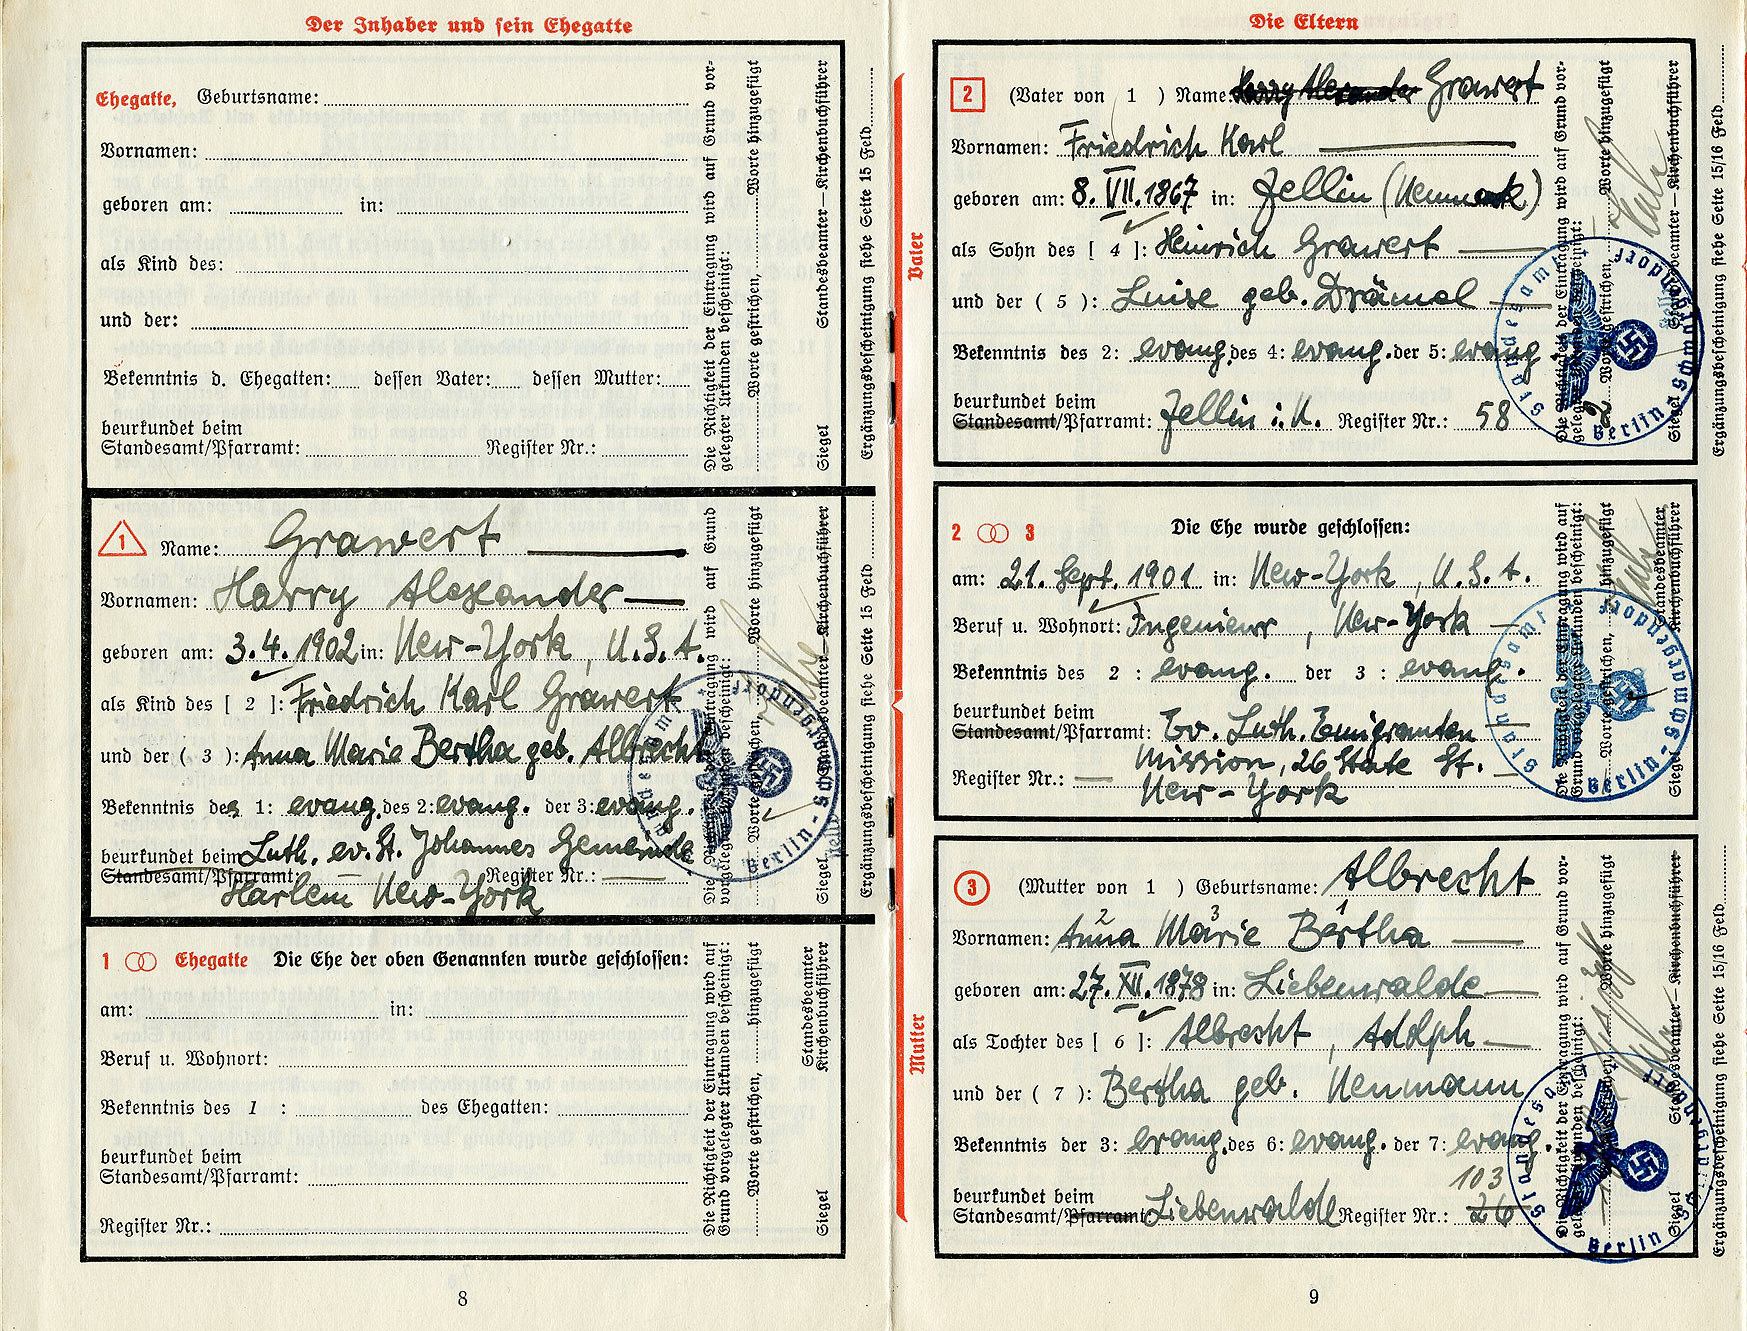 Der Inhaber und sein Ehegatte
Ehegatte, Geburtsname:
Vornamen:
geboren am: in:
als Kind des:
und der:
Bekenntnis d. Ehegatten: dessen Vater: dessen Mutter:
beurkundet beim
Standesamt/Pfarramt: Register Nr.:
Die Richtigkeit der Eintragung wird auf Grund vor-
gelegter Urkunden bescheinigt:
Worte gestrichen, Worte hinzugefügt
Siegel Standesbeamter – Kirchenbuchführer
Ergänzungsbescheinigung siehe Seite 15 Feld
1 Name: Grawert
Vornamen: Harry Alexander
geboren am: 3.4.1902 in: New-York, U.S.A.
als Kind des [ 2 ]: Friedrich Karl Grawert
und der ( 3 ): Anna Marie Bertha geb. Albrecht
Bekenntnis des 1: evang. des 2: evang. der 3: evang.
beurkundet beim Luth. ev. St. Johannes Gemeinde
Standesamt/Pfarramt: Register Nr.:
Harlem New-York
Die Richtigkeit der Eintragung wird auf Grund
vorgelegter Urkunden bescheinigt:
Worte gestrichen, Worte hinzugefügt
Siegel Standesbeamter – Kirchenbuchführer
Ergänzungsbescheinigung siehe Seite 15 Feld
Standesamt Berlin-Schmargendorf
1 Ehegatte Die Ehe der oben Genannten wurde geschlossen:
am: in:
Beruf u. Wohnort:
Bekenntnis des 1 : des Ehegatten:
beurkundet beim
Standesamt/Pfarramt:
Register Nr.:
Die Richtigkeit der Eintragung wird auf
Grund vorgelegter Urkunden bescheinigt:
Worte gestrichen, hinzugefügt
Siegel Standesbeamter
Kirchenbuchführer
8
Die Eltern
Vater
2 (Vater von 1 ) Name: Harry Alexander Grawert
Vornamen: Friedrich Karl
geboren am: 8. VII. 1867 in: Zellin (Neumark)
als Sohn des [ 4 ]: Heinrich Grawert
und der ( 5 ): Luise geb. Drämel
Bekenntnis des 2: evang. des 4: evang. der 5: evang
beurkundet beim
Standesamt/Pfarramt: Zellin i. N. Register Nr.: 58
Die Richtigkeit der Eintragung wird auf Grund vor-
gelegter Urkunden bescheinigt:
2 Worte gestrichen, Worte hinzugefügt
Siegel Standesbeamter – Kirchenbuchführer
Ergänzungsbescheinigung siehe Seite 15/16 Feld
Standesamt Berlin-Schmargendorf
2 3 Die Ehe wurde geschlossen:
am: 21. Sept. 1901 in: New-York, U.S.A.
Beruf u. Wohnort: Ingenieur, New-York
Bekenntnis des 2 : evang. der 3 : evang.
beurkundet beim
Standesamt/Pfarramt: Ev. Luth. Emigranten
Mission, 26 State St.
Register Nr.: New-York
Die Richtigkeit der Eintragung wird auf
Grund vorgelegter Urkunden bescheinigt:
Worte gestrichen, hinzugefügt
Siegel Standesbeamter
Kirchenbuchführer
Standesamt Berlin-Schmargendorf
Mutter
3 (Mutter von 1 ) Geburtsname: Albrecht
2 3 1
Vornamen: Anna Marie Bertha
geboren am: 27. XII. 1878 in: Liebenwalde
als Tochter des [ 6 ]: Albrecht, Adolph
und der ( 7 ): Bertha geb. Neumann
Bekenntnis der 3: evang. des 6: evang. der 7: evang.
103
beurkundet beim
Standesamt/Pfarramt: Liebenwalde Register Nr.: 26
Die Richtigkeit der Eintragung wird auf Grund vor-
gelegter Urkunden bescheinigt:
Worte gestrichen, Worte hinzugefügt
Siegel Standesbeamter – Kirchenbuchführer
Ergänzungsbescheinigung siehe Seite 15/16 Feld
Standesamt Berlin-Schmargendorf
9